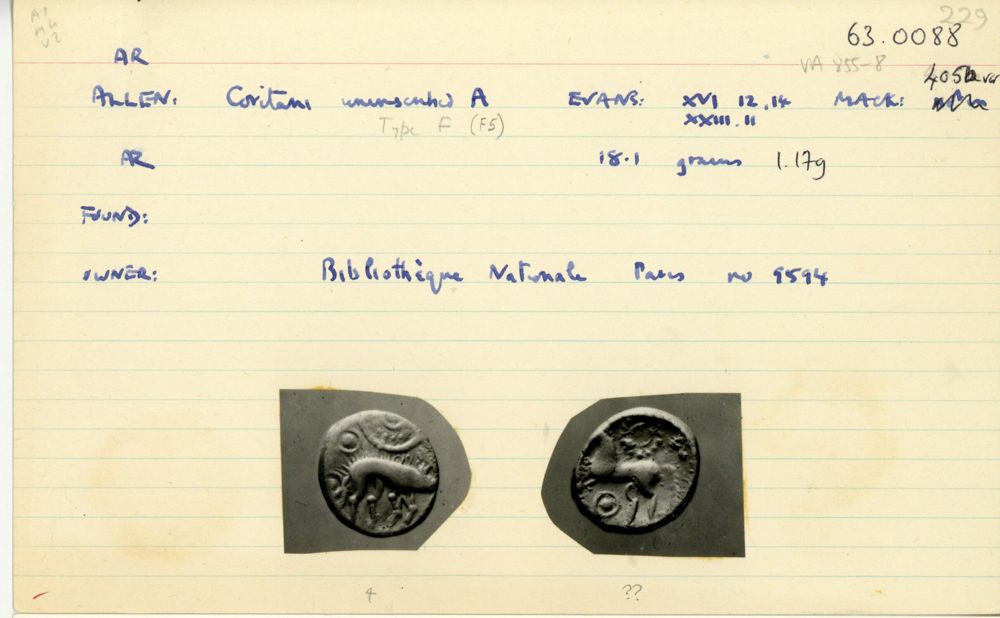 229
63.0088
AR
VA 855-8
405b var
ALLEN: Coritani uninscribed A EVANS: XVI 12, 14 MACK:
Type F (F5) XXIII. 11
AR 18.1 grains 1.17g
FOUND:
OWNER: Bibliothèque Nationale Paris no 9594
4 ??